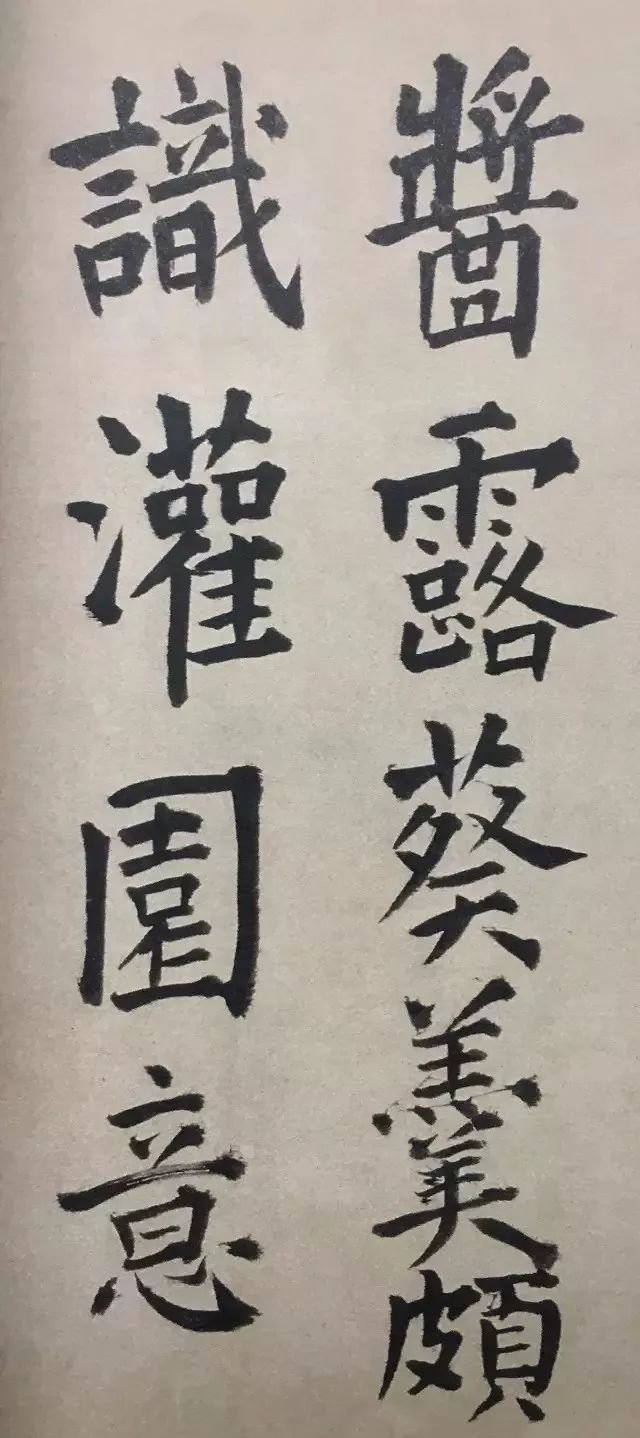 醬露葵羹頗
識灌園意